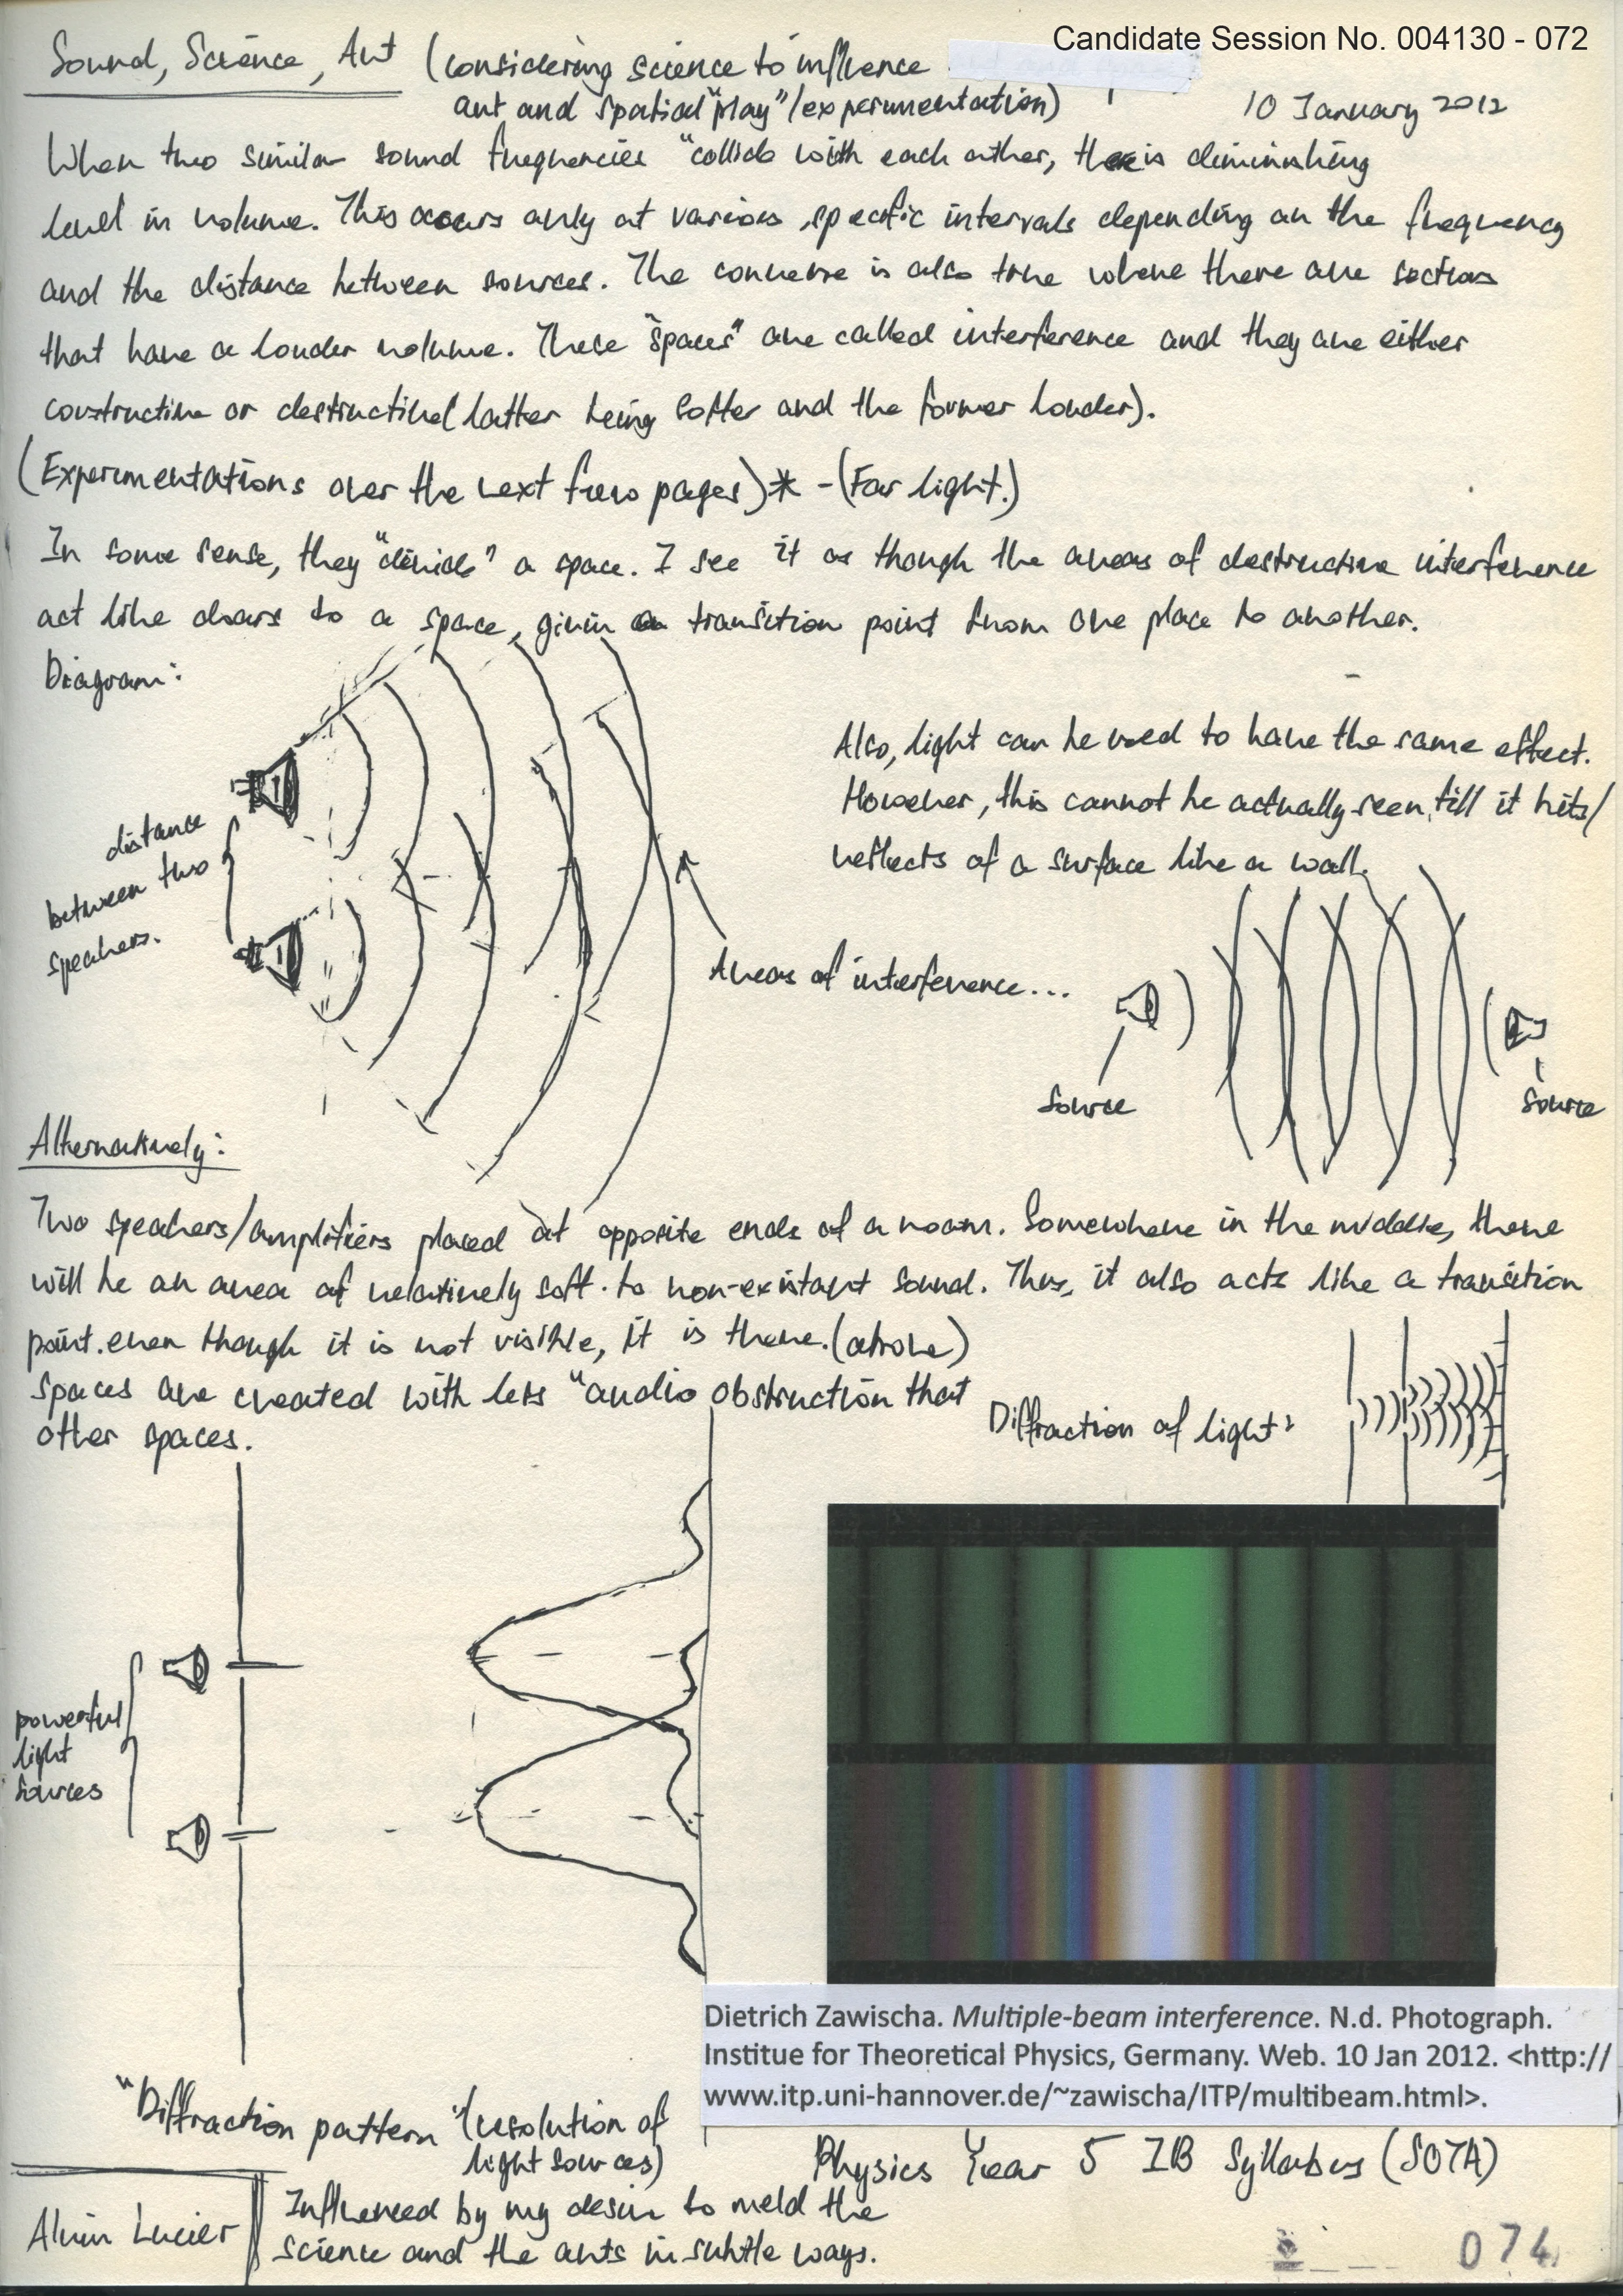 Candidate Session No. 004130 - 072
Sound, Science, Art (considering science to influence
art and spatial "play"/experimentation)
10 January 2012
When two similar sound frequencies "collide with each other, there is diminishing
level in volume. This occurs only at various specific intervals depending on the frequency
and the distance between sources. The converse is also true where there are sections
that have a louder volume. These "spaces" are called interference and they are either
constructive or destructive(latter being softer and the former louder).
(Experimentations over the next few pages)* - (For light.)
In some sense, they "divide" a space. I see it as though the areas of destructive interference
act like doors to a space, givin a transition point from one place to another.
Diagram:
distance
between two
speakers.
Areas of interference...
Also, light can be used to have the same effect.
However, this cannot be actually seen, till it hits/
reflects of a surface like a wall.
Source
Source
Alternatively:
Two speakers/amplifiers placed at opposite ends of a room. Somewhere in the middle, there
will be an area of relatively soft to non-existant sound. Thus, it also acts like a transition
point. even though it is not visible, it is there. (above)
Spaces are created with less "audio obstruction that
other spaces.
Diffraction of light:
powerful
light
sources
Dietrich Zawischa. Multiple-beam interference. N.d. Photograph.
Institue for Theoretical Physics, Germany. Web. 10 Jan 2012. <http://
www.itp.uni-hannover.de/~zawischa/ITP/multibeam.html>.
"Diffraction pattern" (resolution of
light sources)
Physics Year 5 IB Syllabus (SOTA)
Alvin Lucier
Influenced by my desire to meld the
science and the arts in subtle ways.
074